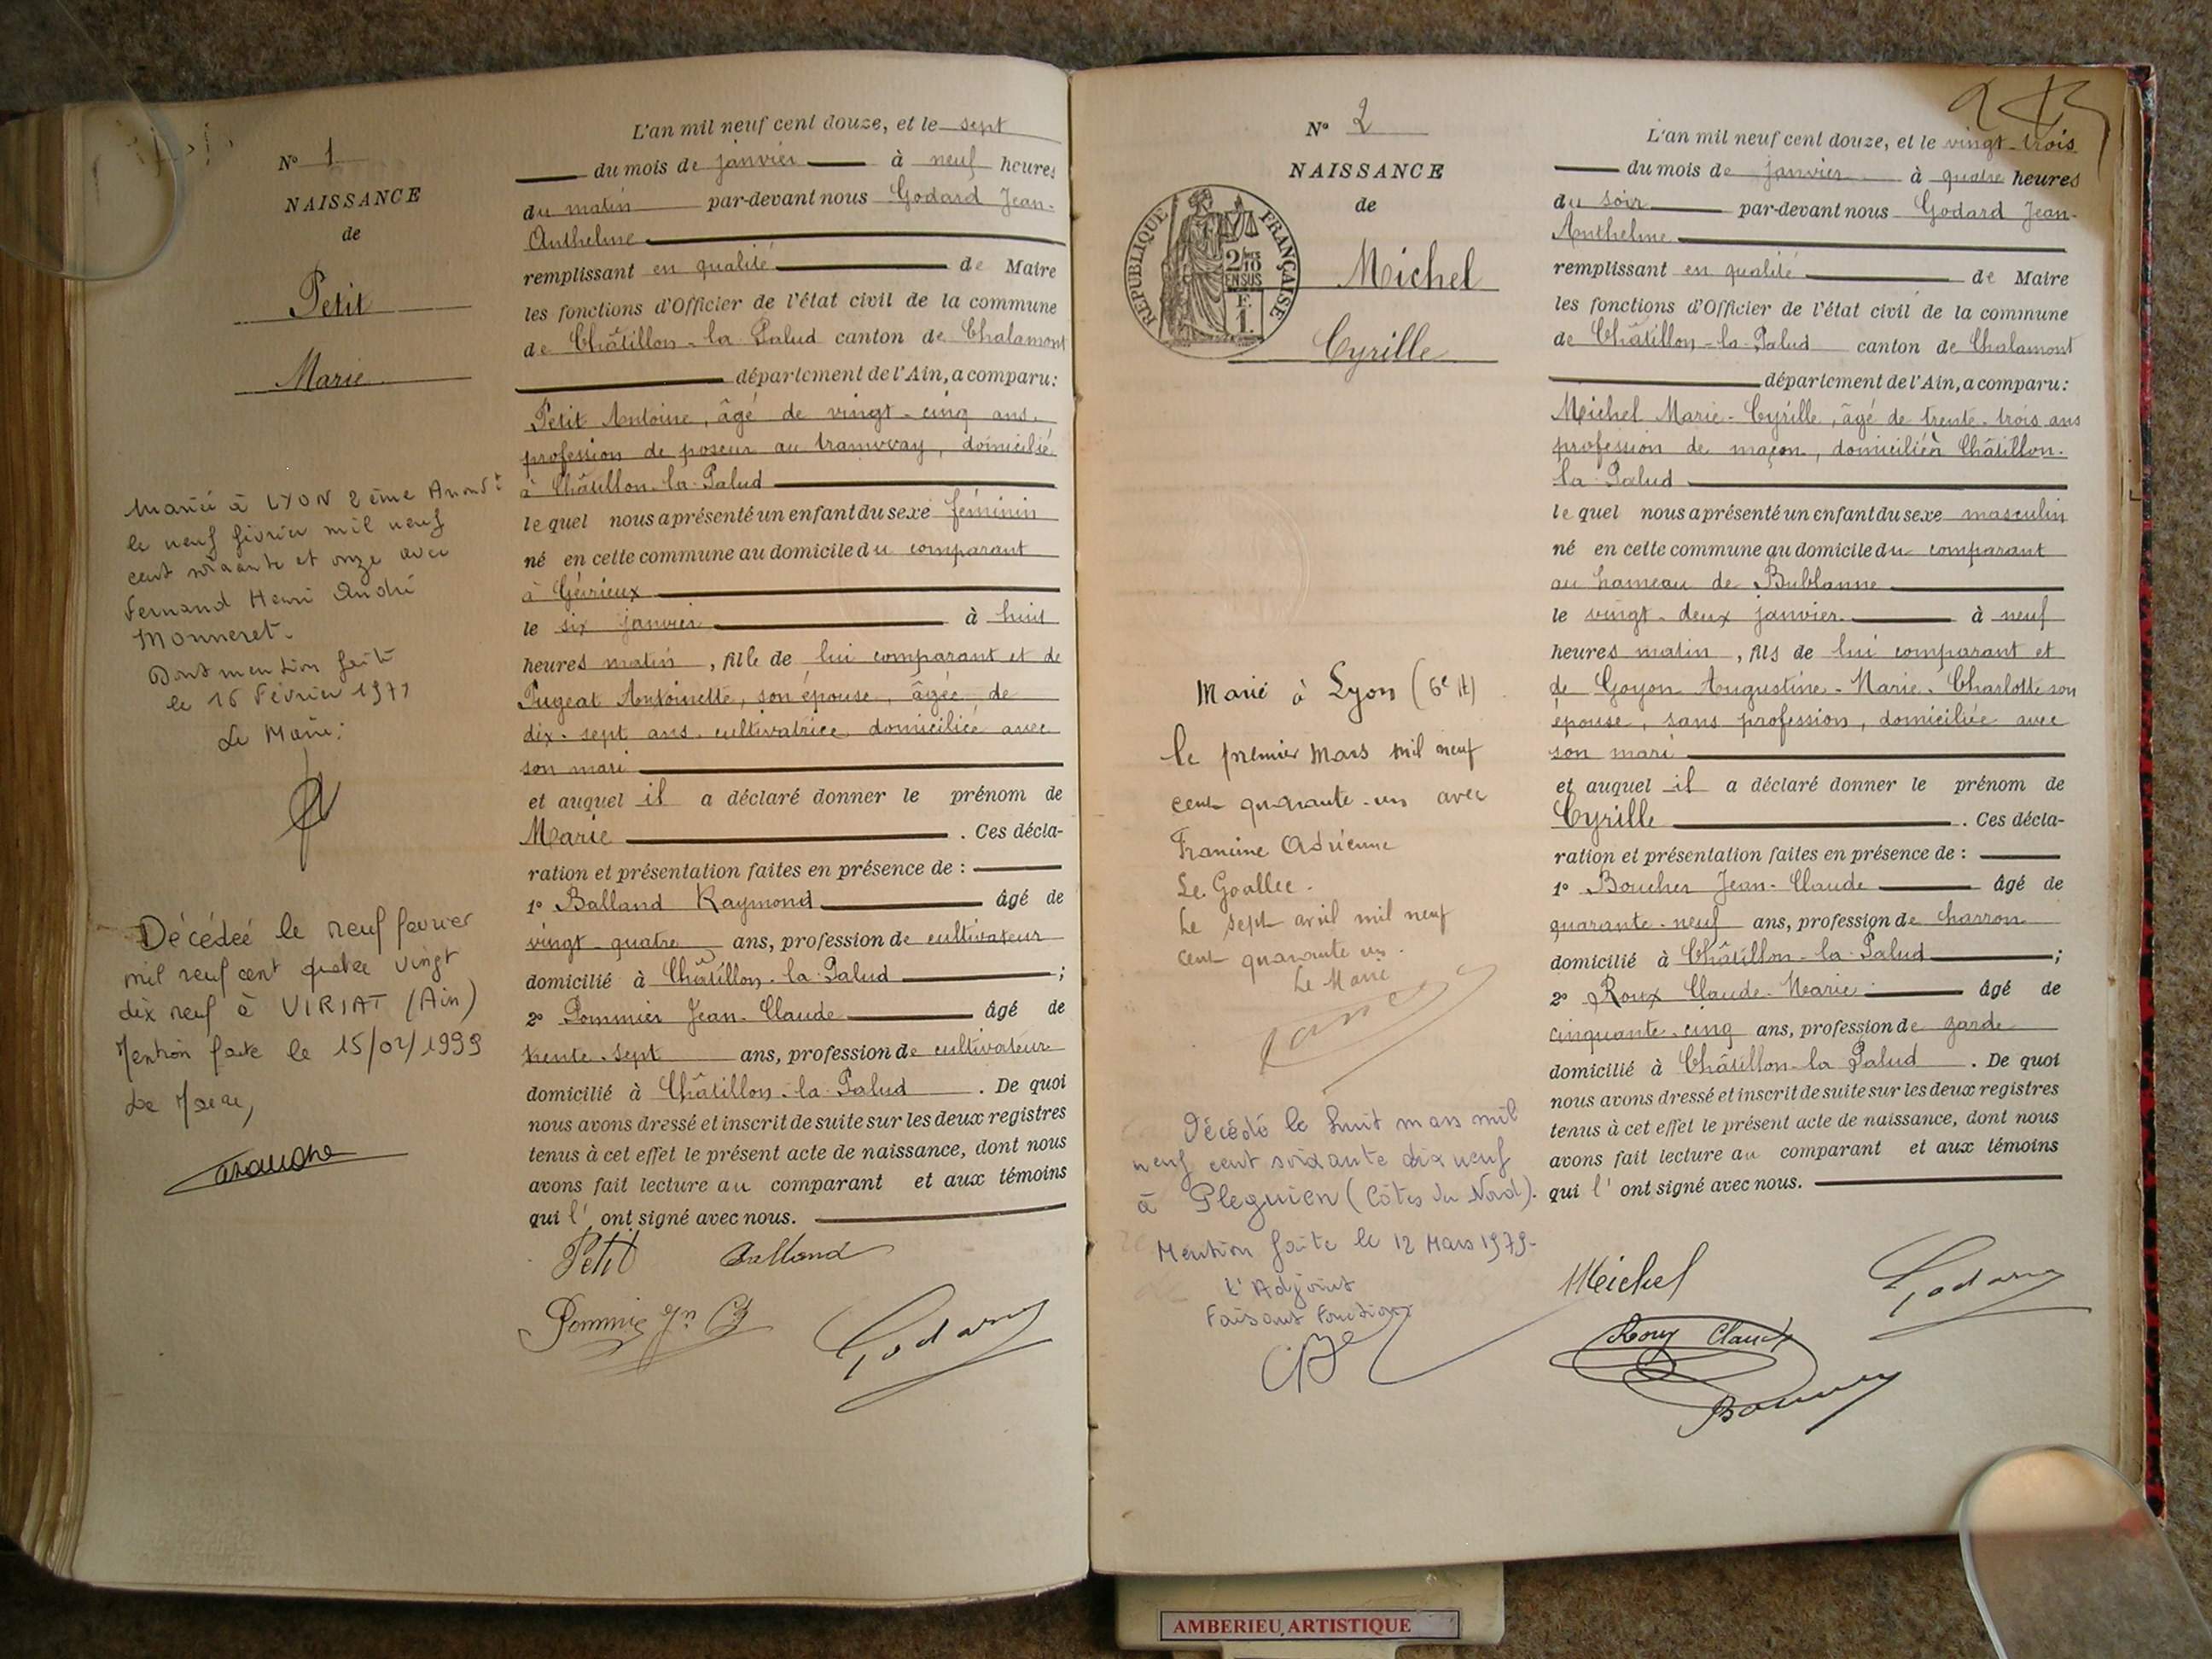 N° 1
NAISSANCE
de
Petit
Marie
Mariée à LYON 2ème Arrondt
le neuf février mil neuf
cent soixante et onze avec
Fernand Henri André
Monneret.
Dont mention faite
le 16 Février 1971
Le Maire:
Décédeé le neuf fevrier
mil neuf cent quatre vingt
dix neuf à VIRIAT (Ain)
Mention faite le 15/02/1999
Le Maire,
L'an mil neuf cent douze, et le sept
du mois de janvier à neuf heures
du matin par-devant nous Godard Jean-
Anthelme
remplissant en qualité de Maire
les fonctions d'Officier de l'état civil de la commune
de Châtillon-la-Palud canton de Chalamont
département de l'Ain, a comparu:
Petit Antoine, âgé de vingt-cinq ans,
profession de poseur au tramway, domicilié
à Châtillon-la-Palud
lequel nous a présenté un enfant du sexe féminin
né en cette commune au domicile du comparant
à Gévrieux
le six janvier à huit
heures matin, fille de lui comparant et de
Pugeat Antoinette, son épouse, âgée de
dix-sept ans cultivatrice domiciliée avec
son mari
et auquel il a déclaré donner le prénom de
Marie. Ces décla-
ration et présentation faites en présence de :
1° Balland Raymond âgé de
vingt-quatre ans, profession de cultivateur
domicilié à Châtillon-la-Palud ;
2° Pommier Jean-Claude âgé de
trente-sept ans, profession de cultivateur
domicilié à Châtillon-la-Palud. De quoi
nous avons dressé et inscrit de suite sur les deux registres
tenus à cet effet le présent acte de naissance, dont nous
avons fait lecture au comparant et aux témoins
qui l' ont signé avec nous.
Petit Balland
Pommier Jn Cl Godard
N° 2
NAISSANCE
de
RÉPUBLIQUE FRANÇAISE
2/10
EN SUS
F.
1.
Michel
Cyrille
Marié à Lyon (6e At)
le premier Mars mil neuf
cent quarante-un avec
Francine Adrienne
Le Goallec.
Le sept avril mil neuf
cent quarante un.
Le Maire
Décédé le huit mars mil
neuf cent soixante dix neuf
à Pleguien (Côtes du Nord).
Mention faite le 12 Mars 1979-
L'Adjoint
Faisant Fonction
L'an mil neuf cent douze, et le vingt-trois
du mois de janvier à quatre heures
du soir par-devant nous Godard Jean-
Anthelme
remplissant en qualité de Maire
les fonctions d'Officier de l'état civil de la commune
de Châtillon-la-Palud canton de Chalamont
département de l'Ain, a comparu:
Michel Marie-Cyrille, âgé de trente-trois ans
profession de maçon, domicilié à Châtillon-
la-Palud
lequel nous a présenté un enfant du sexe masculin
né en cette commune au domicile du comparant
au hameau de Bublanne
le vingt-deux janvier à neuf
heures matin, fils de lui comparant et
de Goyon Augustine-Marie-Charlotte son
épouse, sans profession, domiciliée avec
son mari
et auquel il a déclaré donner le prénom de
Cyrille. Ces décla-
ration et présentation faites en présence de :
1° Boucher Jean-Claude âgé de
quarante-neuf ans, profession de charron
domicilié à Châtillon-la-Palud ;
2° Roux Claude-Marie âgé de
cinquante-cinq ans, profession de garde
domicilié à Châtillon-la-Palud. De quoi
nous avons dressé et inscrit de suite sur les deux registres
tenus à cet effet le présent acte de naissance, dont nous
avons fait lecture au comparant et aux témoins
qui l' ont signé avec nous.
Michel Godard
Roux Claude
AMBERIEU ARTISTIQUE